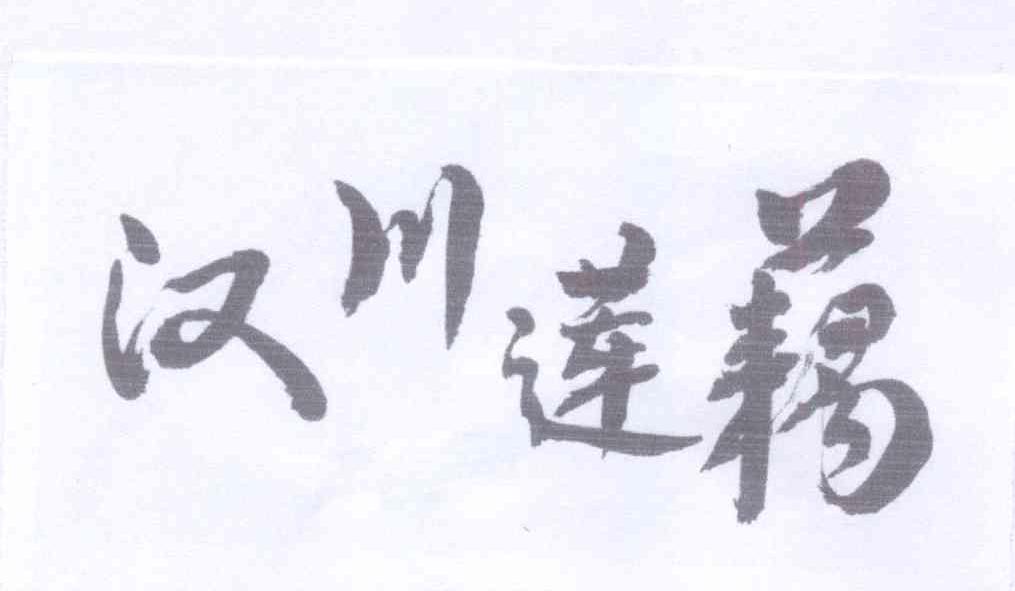 汉川莲藕